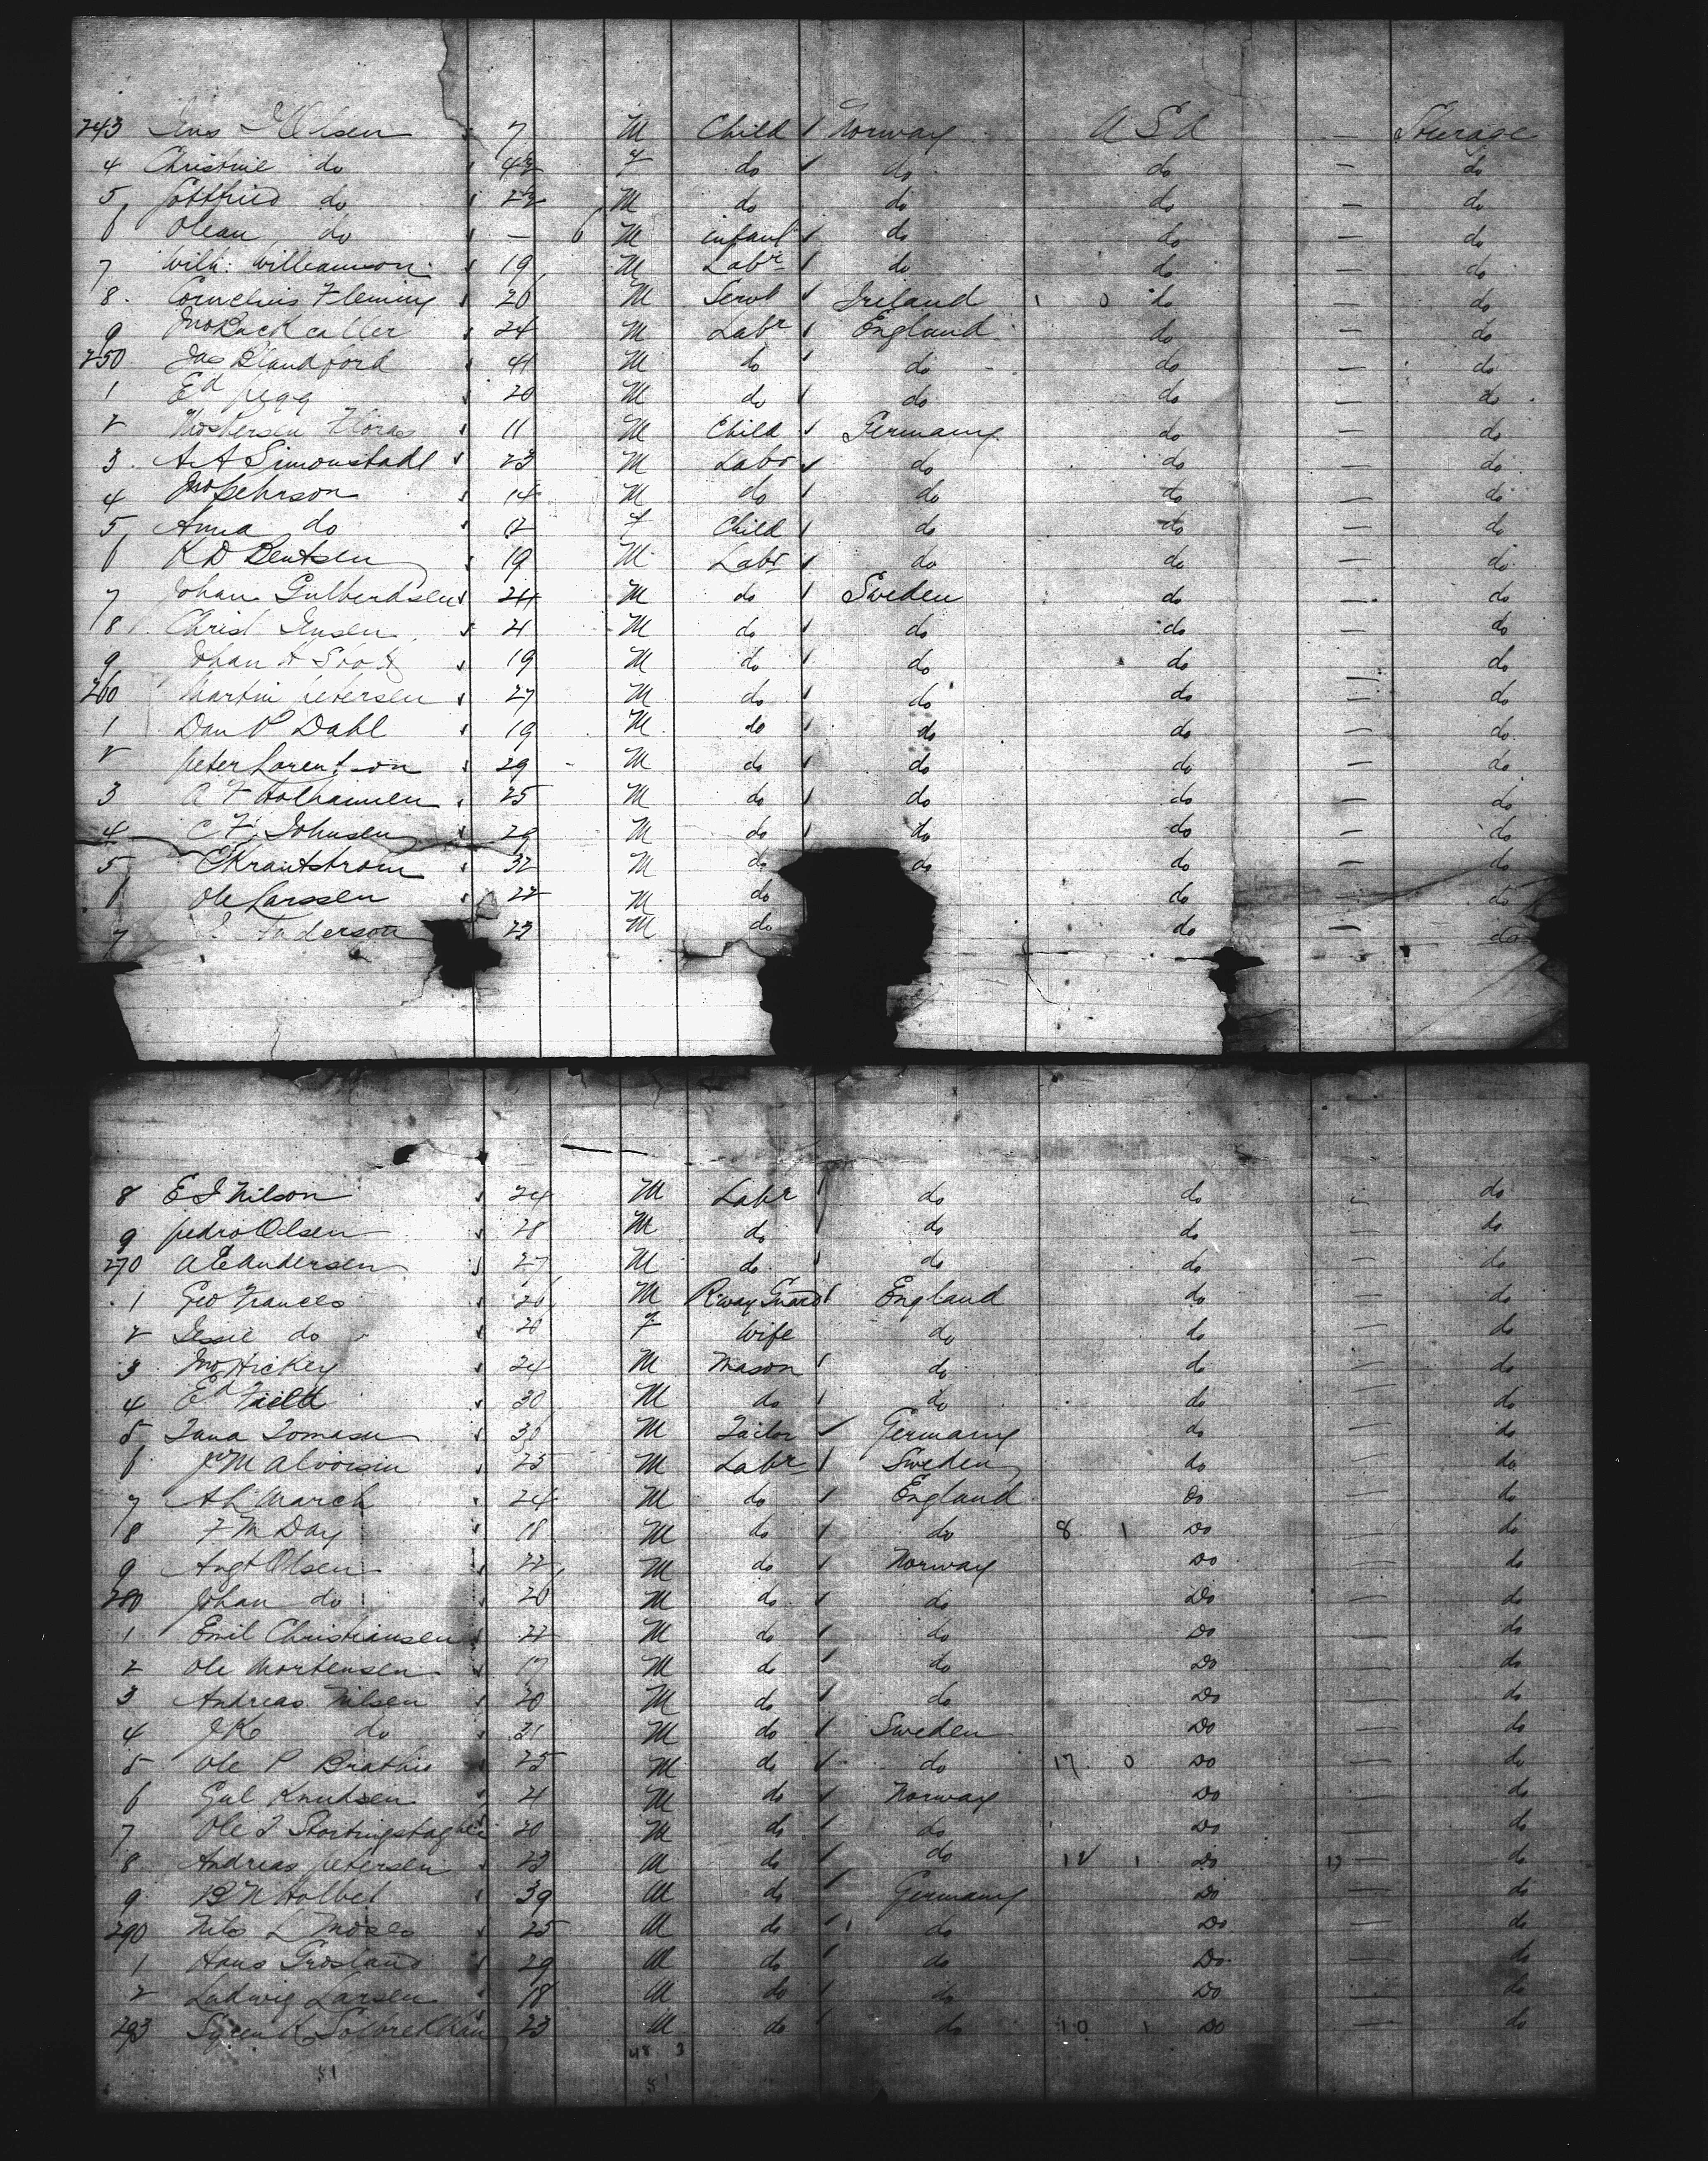 243 Jens J Olsen 7 M Child Norway U S A — Steerage
4 Christine do 4½ F do do do — do
5 Gottfried do 2½ M do do do — do
6 Olean do — 6 M infant do do — do
7 Wilh. Williamson 19 M Labr do do — do
8 Cornelius Fleming 26 M Servt Ireland 1 0 do — do
9 Jno Rackcaller 24 M Labr England do — do
250 Jas Blandford 41 M do do do — do
1 Ed Pegg 20 M do do do — do
2 11 M Child Germany do — do
3 A A Simonstadl 23 M Labr do do — do
4 Jno Pehrson 14 M do do do — do
5 Anna do 12 F Child do do — do
6 K D Bentsen 19 M Labr do do — do
7 Johan Gulbrandsen 24 M do Sweden do — do
8 Christ Jensen 21 M do do do — do
9 Johan A 19 M do do do — do
260 Martin Petersen 27 M do do do — do
1 Dan P Dahl 19 M do do do — do
2 Peter Lorentson 29 M do do do — do
3 A F 25 M do do do — do
4 C F Johnsen 28 M do do do — do
5 C Krantstrom 32 M do do do — do
6 Ole Larssen 22 M do do — do
7 Anderson 23 M do do — do
8 E J Nilson 24 M Labr do do - do
9 Pedro Olsen 28 M do do do — do
270 A E Andersen 27 M do do do — do
1 Geo Frances 26 M R.way Guard England do — do
2 Jessie do 26 F Wife do do — do
3 Jno Hickey 24 M Mason do do — do
4 Ed Field 30 M do do do — do
5 Tana Tomasu 36 M Tailor Germany do — do
6 J M Alvorsin 25 M Labr Sweden do — do
7 A L March 24 M do England Do — do
8 F M Day 18 M do do 8 1 Do — do
9 Augt Olsen 22 M do Norway Do — do
280 Johan do 26 M do do Do — do
1 Emil Christiansen 22 M do do Do — do
2 Ole Mortensen 17 M do do Do — do
3 Andreas Nilsen 20 M do do Do — do
4 J K do 21 M do Sweden Do — do
5 Ole P Brathie 25 M do do 17 0 Do — do
6 Gul Knudsen 21 M do Norway Do — do
7 Ole J 20 M do do Do — do
8 Andreas Petersen 23 M do do 12 1 Do 13 — do
9 B N Holbet 39 M do Germany Do — do
290 Nils L Moses 25 M do do Do — do
1 Hans Grosland 29 M do do Do — do
2 Ludwig Larsen 18 M do do Do — do
293 23 M do do 10 1 Do — do
48 3
51 51